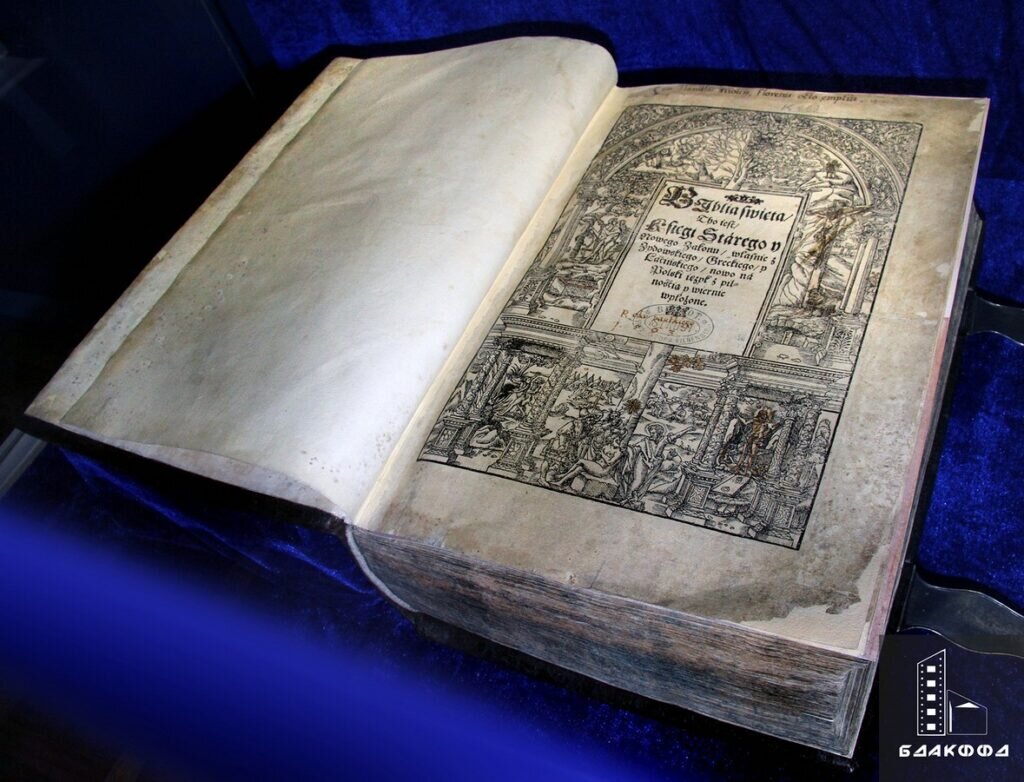 BIblia święta/
Tho iest/
Księgi Stárego y
Nowego Zakonu/ właśnie z
Żydowskiego/ Greckiego/ y
Łacińskiego/ nowo ná
Polski ięzyk z pil-
nością y wiernie
wyłożone.